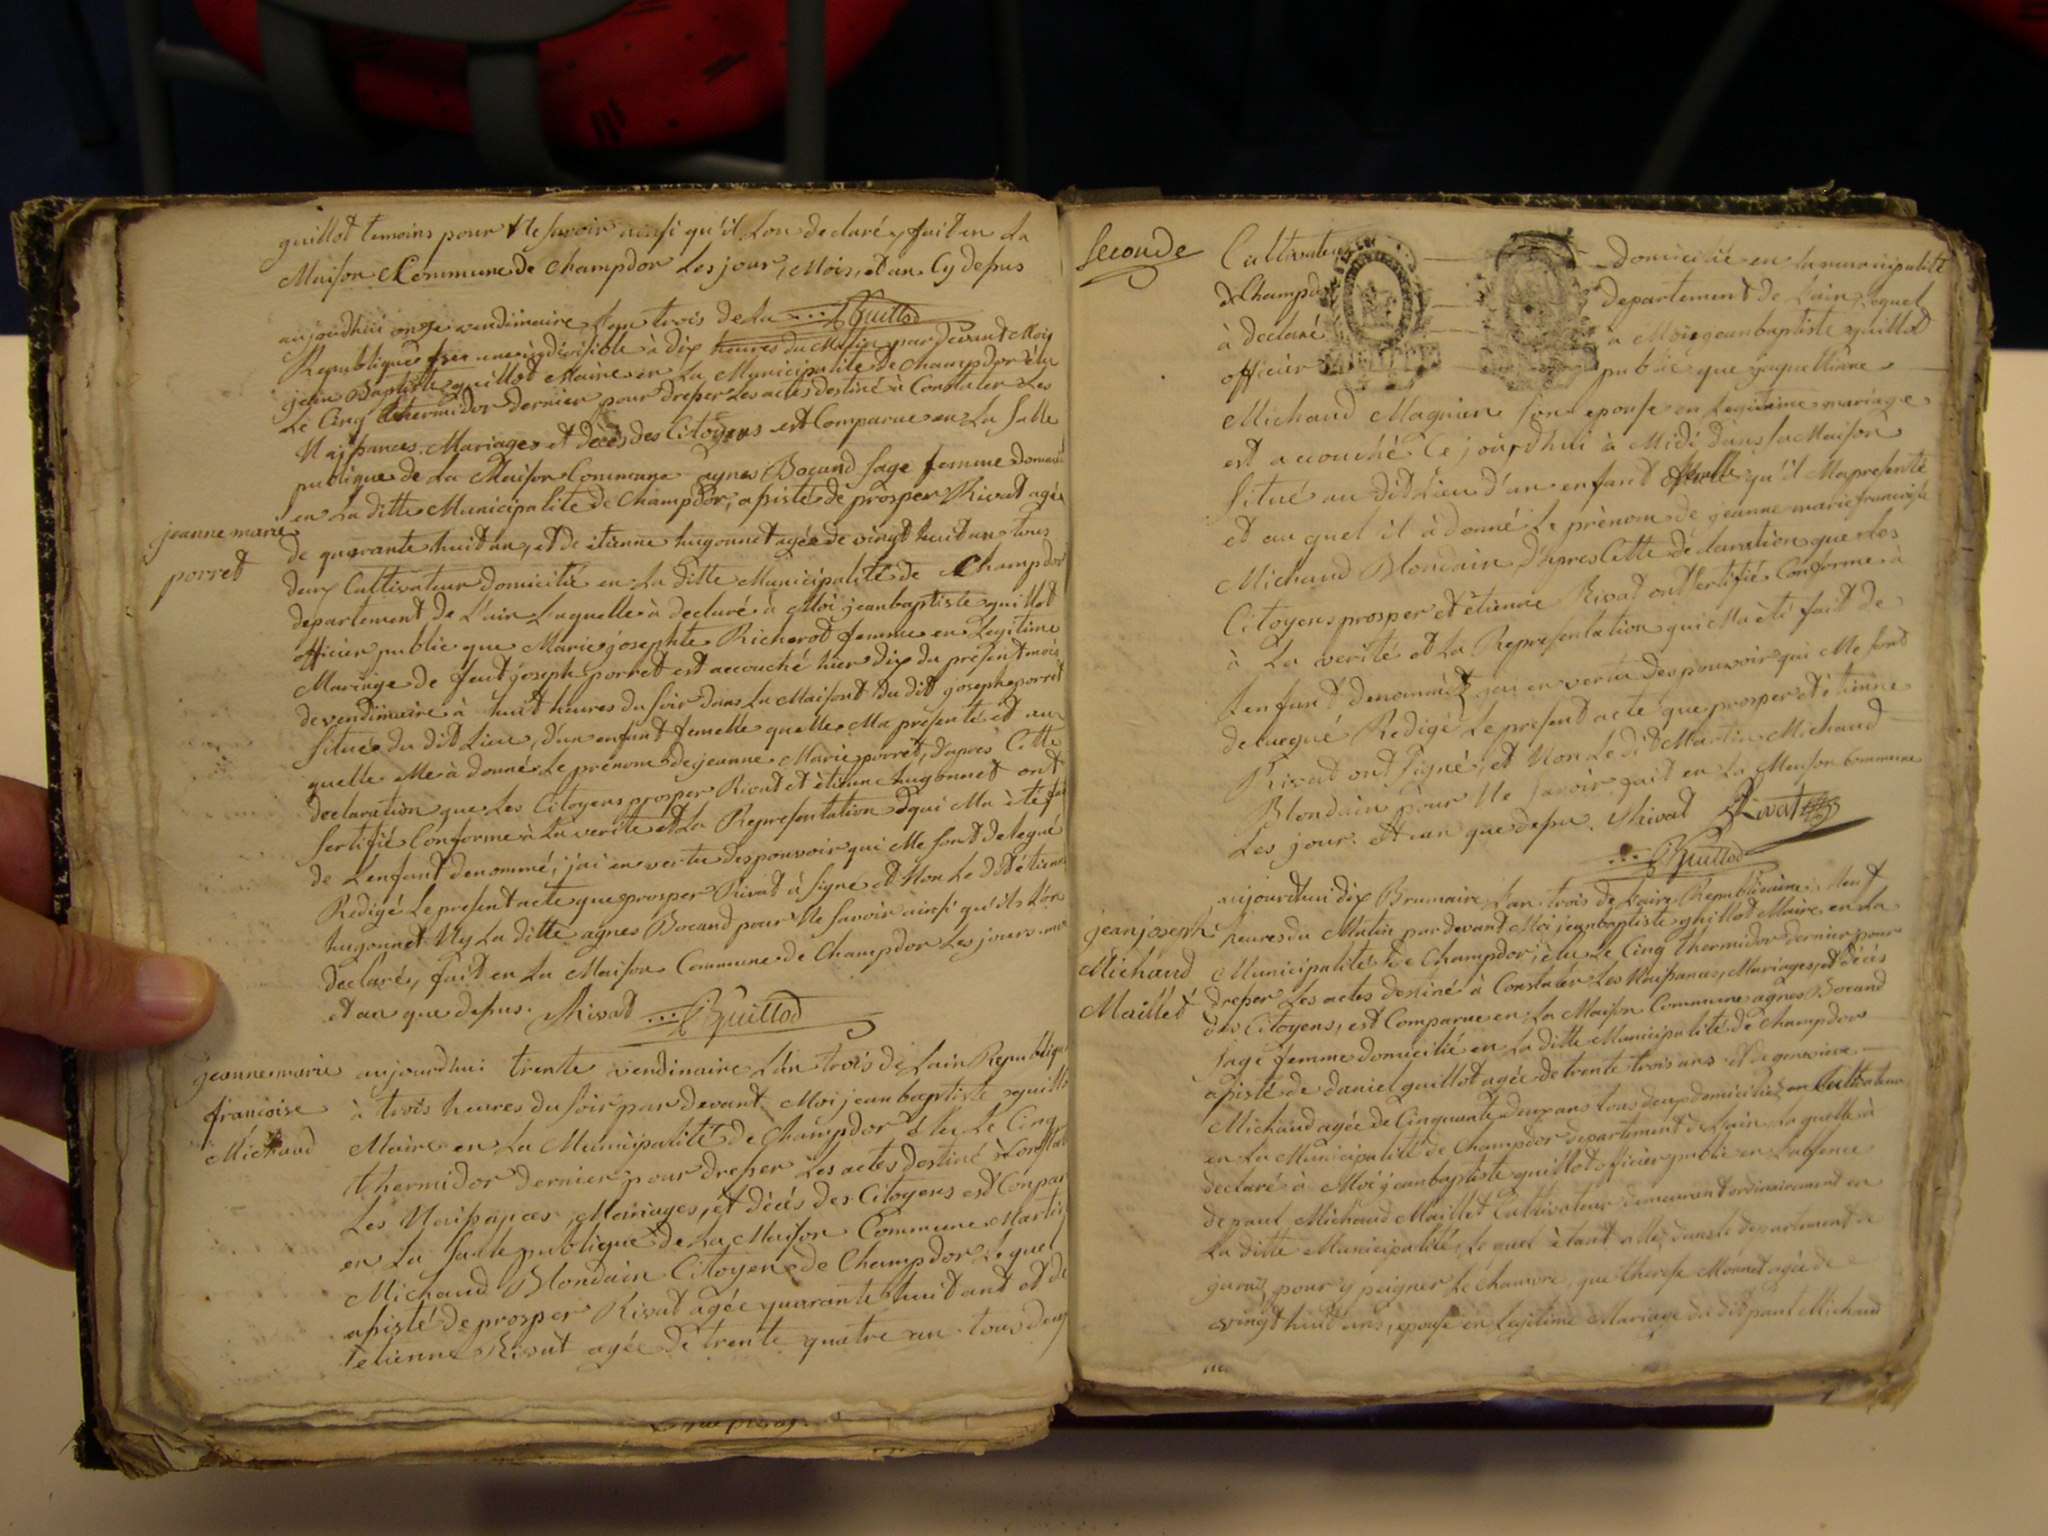 guillot temoins pour ne savoir ainsi qu'il lon declaré, fait en La
Maison Commune de Champdor Les jour, Mois, et an Cy depus
Guillod
aujourdhui onze vendimaire Lan trois de La
Republique une indivisible à dix heures du Matin par devant Moi
jean Baptiste guillot Maire en La Municipalité de Champdor élu
Le Cinq thermidor dernier pour dreser Les actes destiné à Constater Les
Naissances, Mariages et décès des Citoyens est Comparue en La Salle
publique de La Maison Commune agnes Bocand sage femme
en La ditte Municipalité de Champdor, asisté de prosper Rivat agée
jeanne marie
porret
de quarante huit an, et de etienne hugonnet agée de vingt huit an tous
deux Cultivateur domicilié en La ditte Municipalité de Champdor
departement de L'ain Laquelle à declaré à Moi jean baptiste guillot
officier public que Marie josephte Richerot femme en Legitime
Mariage de feut joseph porret est accouché hier dix du présent mois
de vendimaire à huit heures du soir dans La Maison du dit joseph porret
situé du dit Lieu, d'un enfant femelle quelle Ma presenté et au
quelle Me à donné Le prenom de jeanne Marie porret, dapres Cette
declaration que Les Citoyens prosper Rivat et étienne hugonnet ont
Sertifié Conforme à La verité et La Representation qui Ma été fait
de L'enfant denommé, j'ai en vertu des pouvoir qui Me sont delegué
Redigé Le present acte que prosper Rivat à signé et Non Le dit étienne
hugonnet Ny La ditte agnes Bocand pour Ne savoir ainsi qu'ils L'on
declaré, fait en La Maison Commune de Champdor Les jour, moi
et an que depus. Rivat Guillod
jeanne marie
francoise
Michaud
aujourd'hui trente vendimaire L'an trois de Lair Republique
à trois heures du soir par devant Moi jean baptiste guillot
Maire en La Municipalité de Champdor élu Le Cinq
thermidor dernier pour dreser Les actes destiné à Constater
Les Naissances, Mariages, et décés des Citoyens est Conpar
en La Salle publique de La Maison Commune Martin
Michaud Blondain Citoyen de Champdor Le quel
asisté de prosper Rivat agée quarante huit ant et de
etienne Rivat agée de trente quatre an tous deux
Seconde
Cultivateur domicilié en La municipalité
de Champdor departement de Lain Lequel
à declaré à Moi jean baptiste guillot
officier public que jaquelline
Michaud Magnien son epouse en Legitime mariage
est accouché Ce jourdhui à Midi dans sa Maison
situé au dit Lieu d'un enfant femelle qu'il Ma presenté
et au quel il à donné Le prènom de jeanne marie francoise
Michaud Blondain D'apres Cette declaration que Les
Citoyens prosper et étienne Rivat ont Certifié Conforme à
à La verité et La Representation qui Ma été fait de
Lenfant denommé, jai en vertu des pouvoir qui Me sont
delegué Redigé Le present acte que prosper et étienne
Rivat ont signé, et Non Le dit Martin Michaud
Blondain pour Ne savoir fait en La Maison Commune
Les jour. et an que depu. Rivat Rivat
Guillod
jean joseph
Michaud
Maillet
aujourdhui dix Brumaire Lan trois de Laire Republicaine, Neuf
heures du Matin par devant Moi jean baptiste guillot Maire en La
Municipalité de Champdor, élu Le Cinq thermidor dernier pour
dreser Les actes destiné à Constater Les Naissances, Mariages, et décès
des Citoyens, est Comparue en La Maison Commune agnes Bocand
sage femme domicilié en La ditte Municipalité de Champdor
asisté de daniel guillot agée de trente trois ans et de genevieve
Michaud agée de Cinquante deux ans tous deux domiciliez en Cultivateur
en La Municipalité de Champdor departement de Lain La quelle à
declaré à Moi jean baptiste guillot officier public en L'absence
de paul Michaud Maillet Cultivateur demeurant ordinairement en
La ditte Municipalité, Le quel étant allé dans le departement du
jura pour y peigner Le chanvre, que therese Monnet agée de
vingt huit ans, epouse en Legitime Mariage du dit paul Michaud